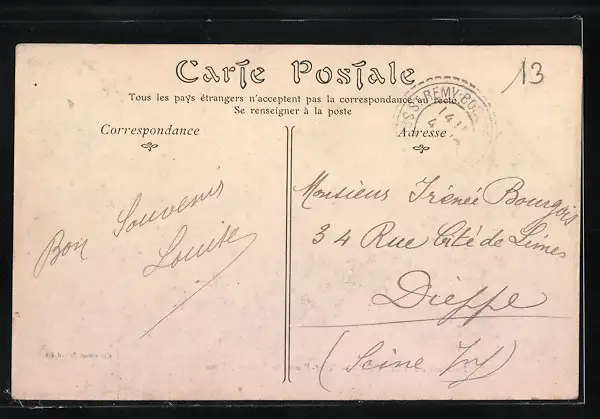 Carte Postale
13
Tous les pays étrangers n'acceptent pas la correspondance au recto.
Se renseigner à la poste
Correspondance
Adresse
Bon Souvenir
Louise
Monsieur Irénée Bourgois
34 Rue Cité de Limes
Dieppe
(Seine Inf)